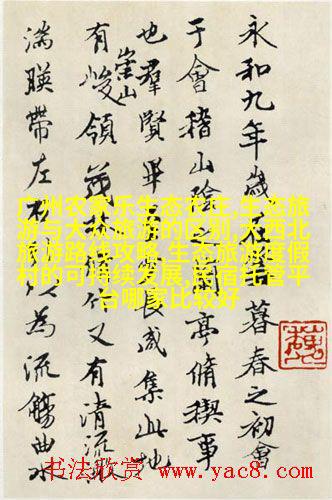 永和九年歲在暮春之初會
于會稽山陰之蘭亭脩稧事
也羣賢畢長咸集此地
有崇山峻領茂林脩竹又有清流激
湍暎帶左為流觴曲水
广州农家乐生态农庄,生态旅
游与大众旅游的区别,大西北
旅游路线攻略,生态旅游度假
村的可持续发展,民宿托管平
台哪家比较好
书法欣赏 www.yac8.com